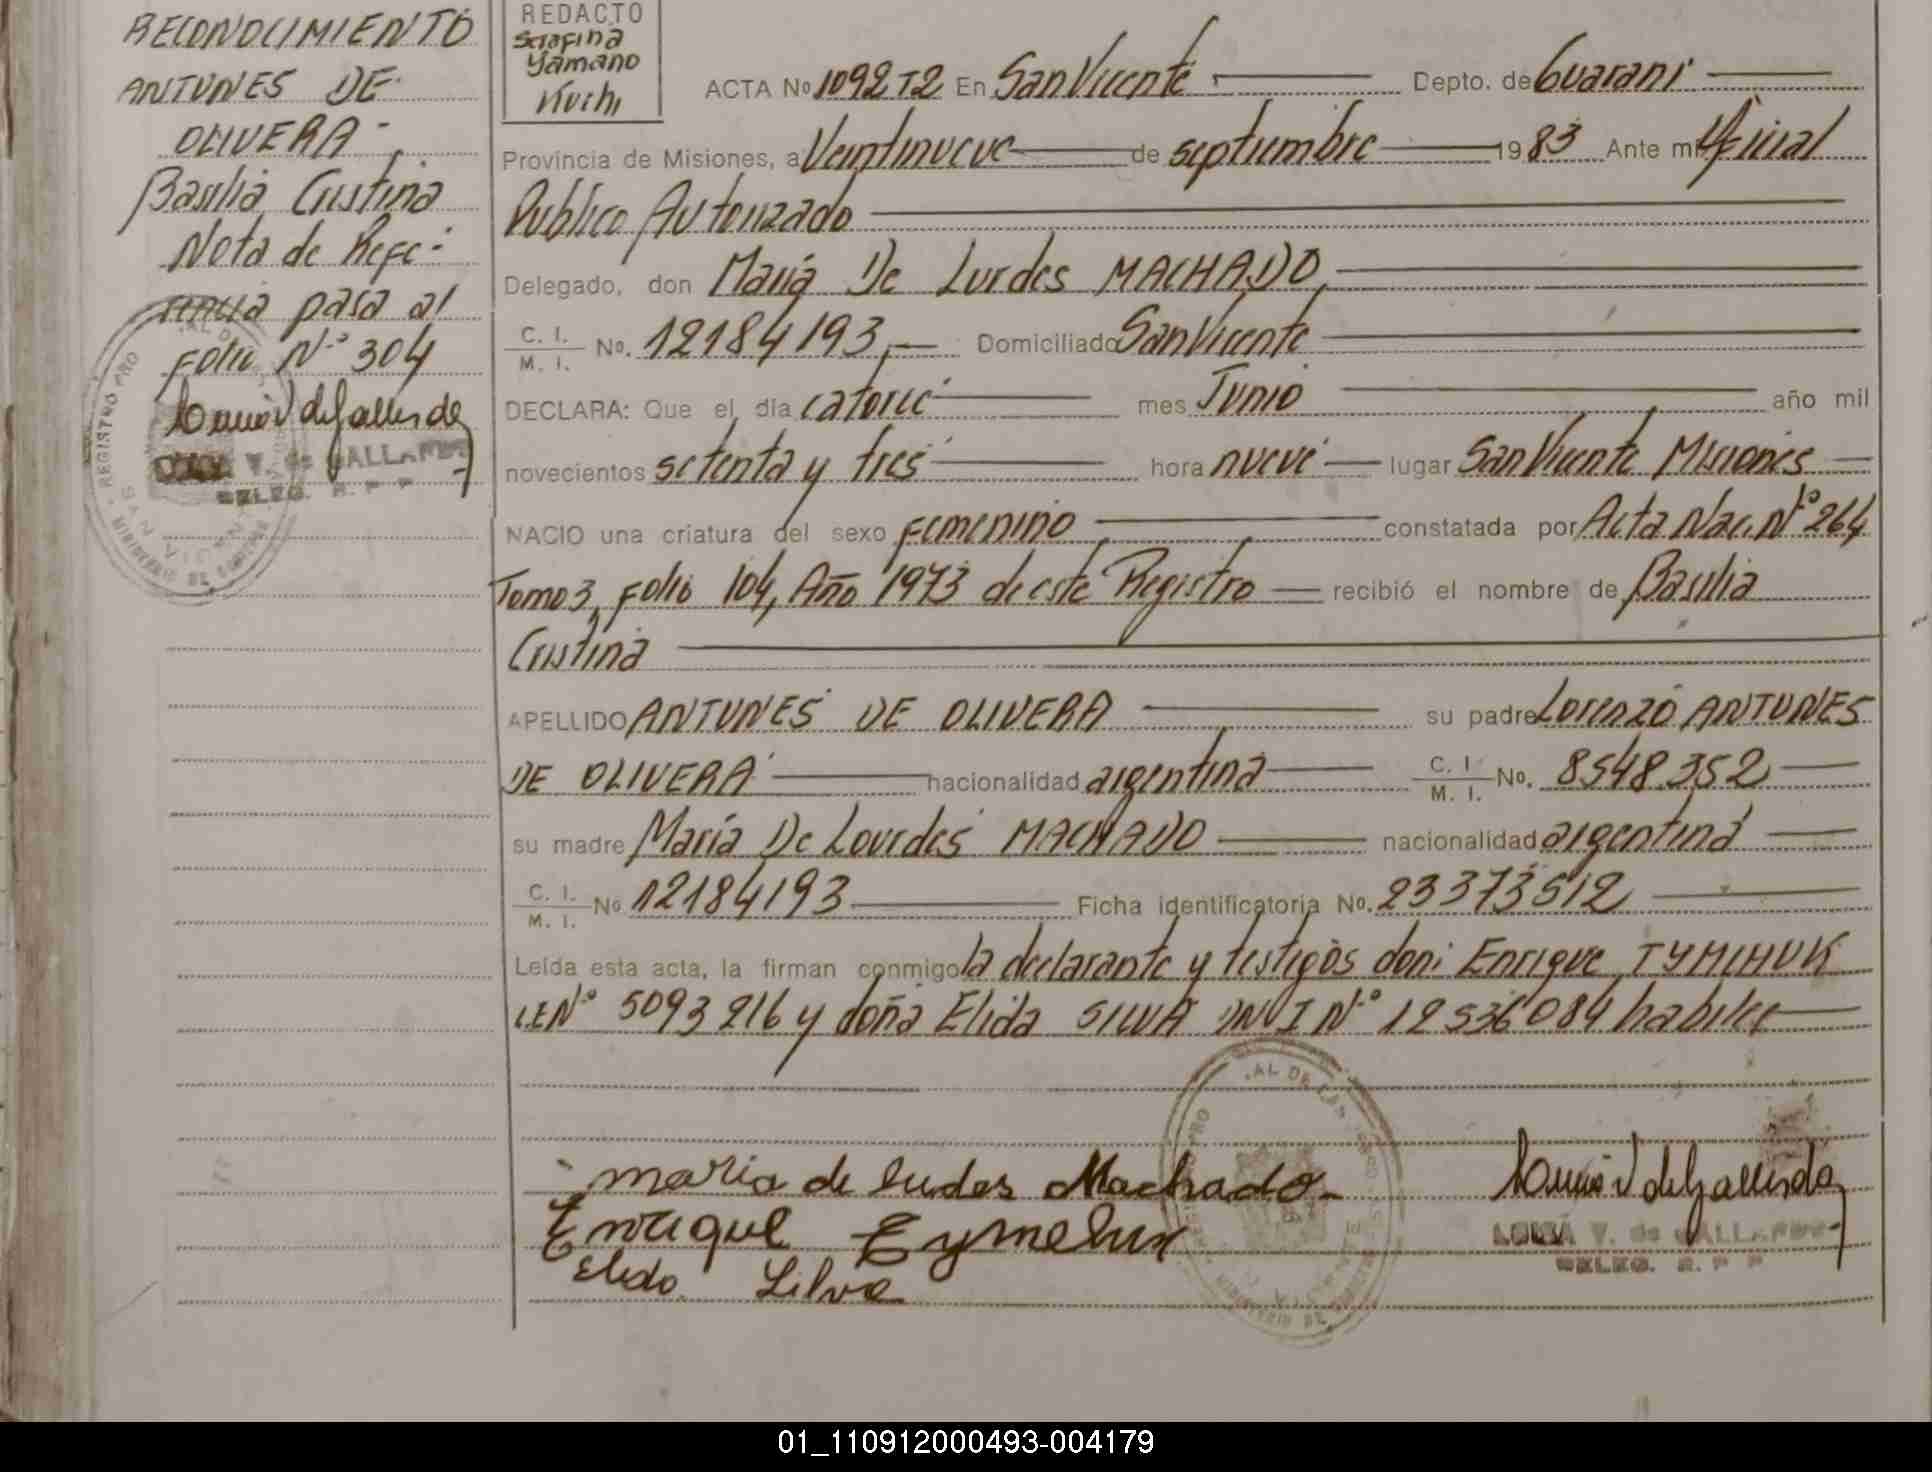 RECONOCIMIENTO
ANTUNES DE
OLIVERA -
Basilia Cristina
Nota de Refe-
rencia pasa al
Folio Nº 304
V. de GALLARDO
DELEG. R. P. P.
REDACTO
Serafina
Yamano
Kichi
ACTA No 1092 T2 En San Vicente Depto. de Guarani
Provincia de Misiones, a Veintinueve de septiembre 1983 Ante mi Oficial
Publico Autorizado
Delegado, don Maria De Lurdes MACHADO,
C. I. / M. I. No. 12184193,— Domiciliado San Vicente
DECLARA: Que el dia catorce mes Junio año mil
novecientos setenta y tres hora nueve lugar San Vicente Misiones
NACIO una criatura del sexo femenino constatada por Acta Nac. Nº 264
Tomo 3, Folio 104, Año 1973 de este Registro recibió el nombre de Basilia
Cristina
APELLIDO ANTUNES DE OLIVERA su padre Lorenzo ANTUNES
DE OLIVERA nacionalidad argentina C. I. / M. I. No. 8548.352
su madre María De Lourdes MACHADO nacionalidad argentina
C. I. / M. I. No 12184193 Ficha identificatoria No. 23373512
Leída esta acta, la firman conmigo la declarante y testigos don: Enrique TYMCHUK
LE Nº 5093216 y doña Elida SILVA DNI Nº 12536084 habiles
maria de ludes Machado
Enrique
Elido Silva
V. de GALLARDO
DELEG. R. P. P.
01_110912000493-004179